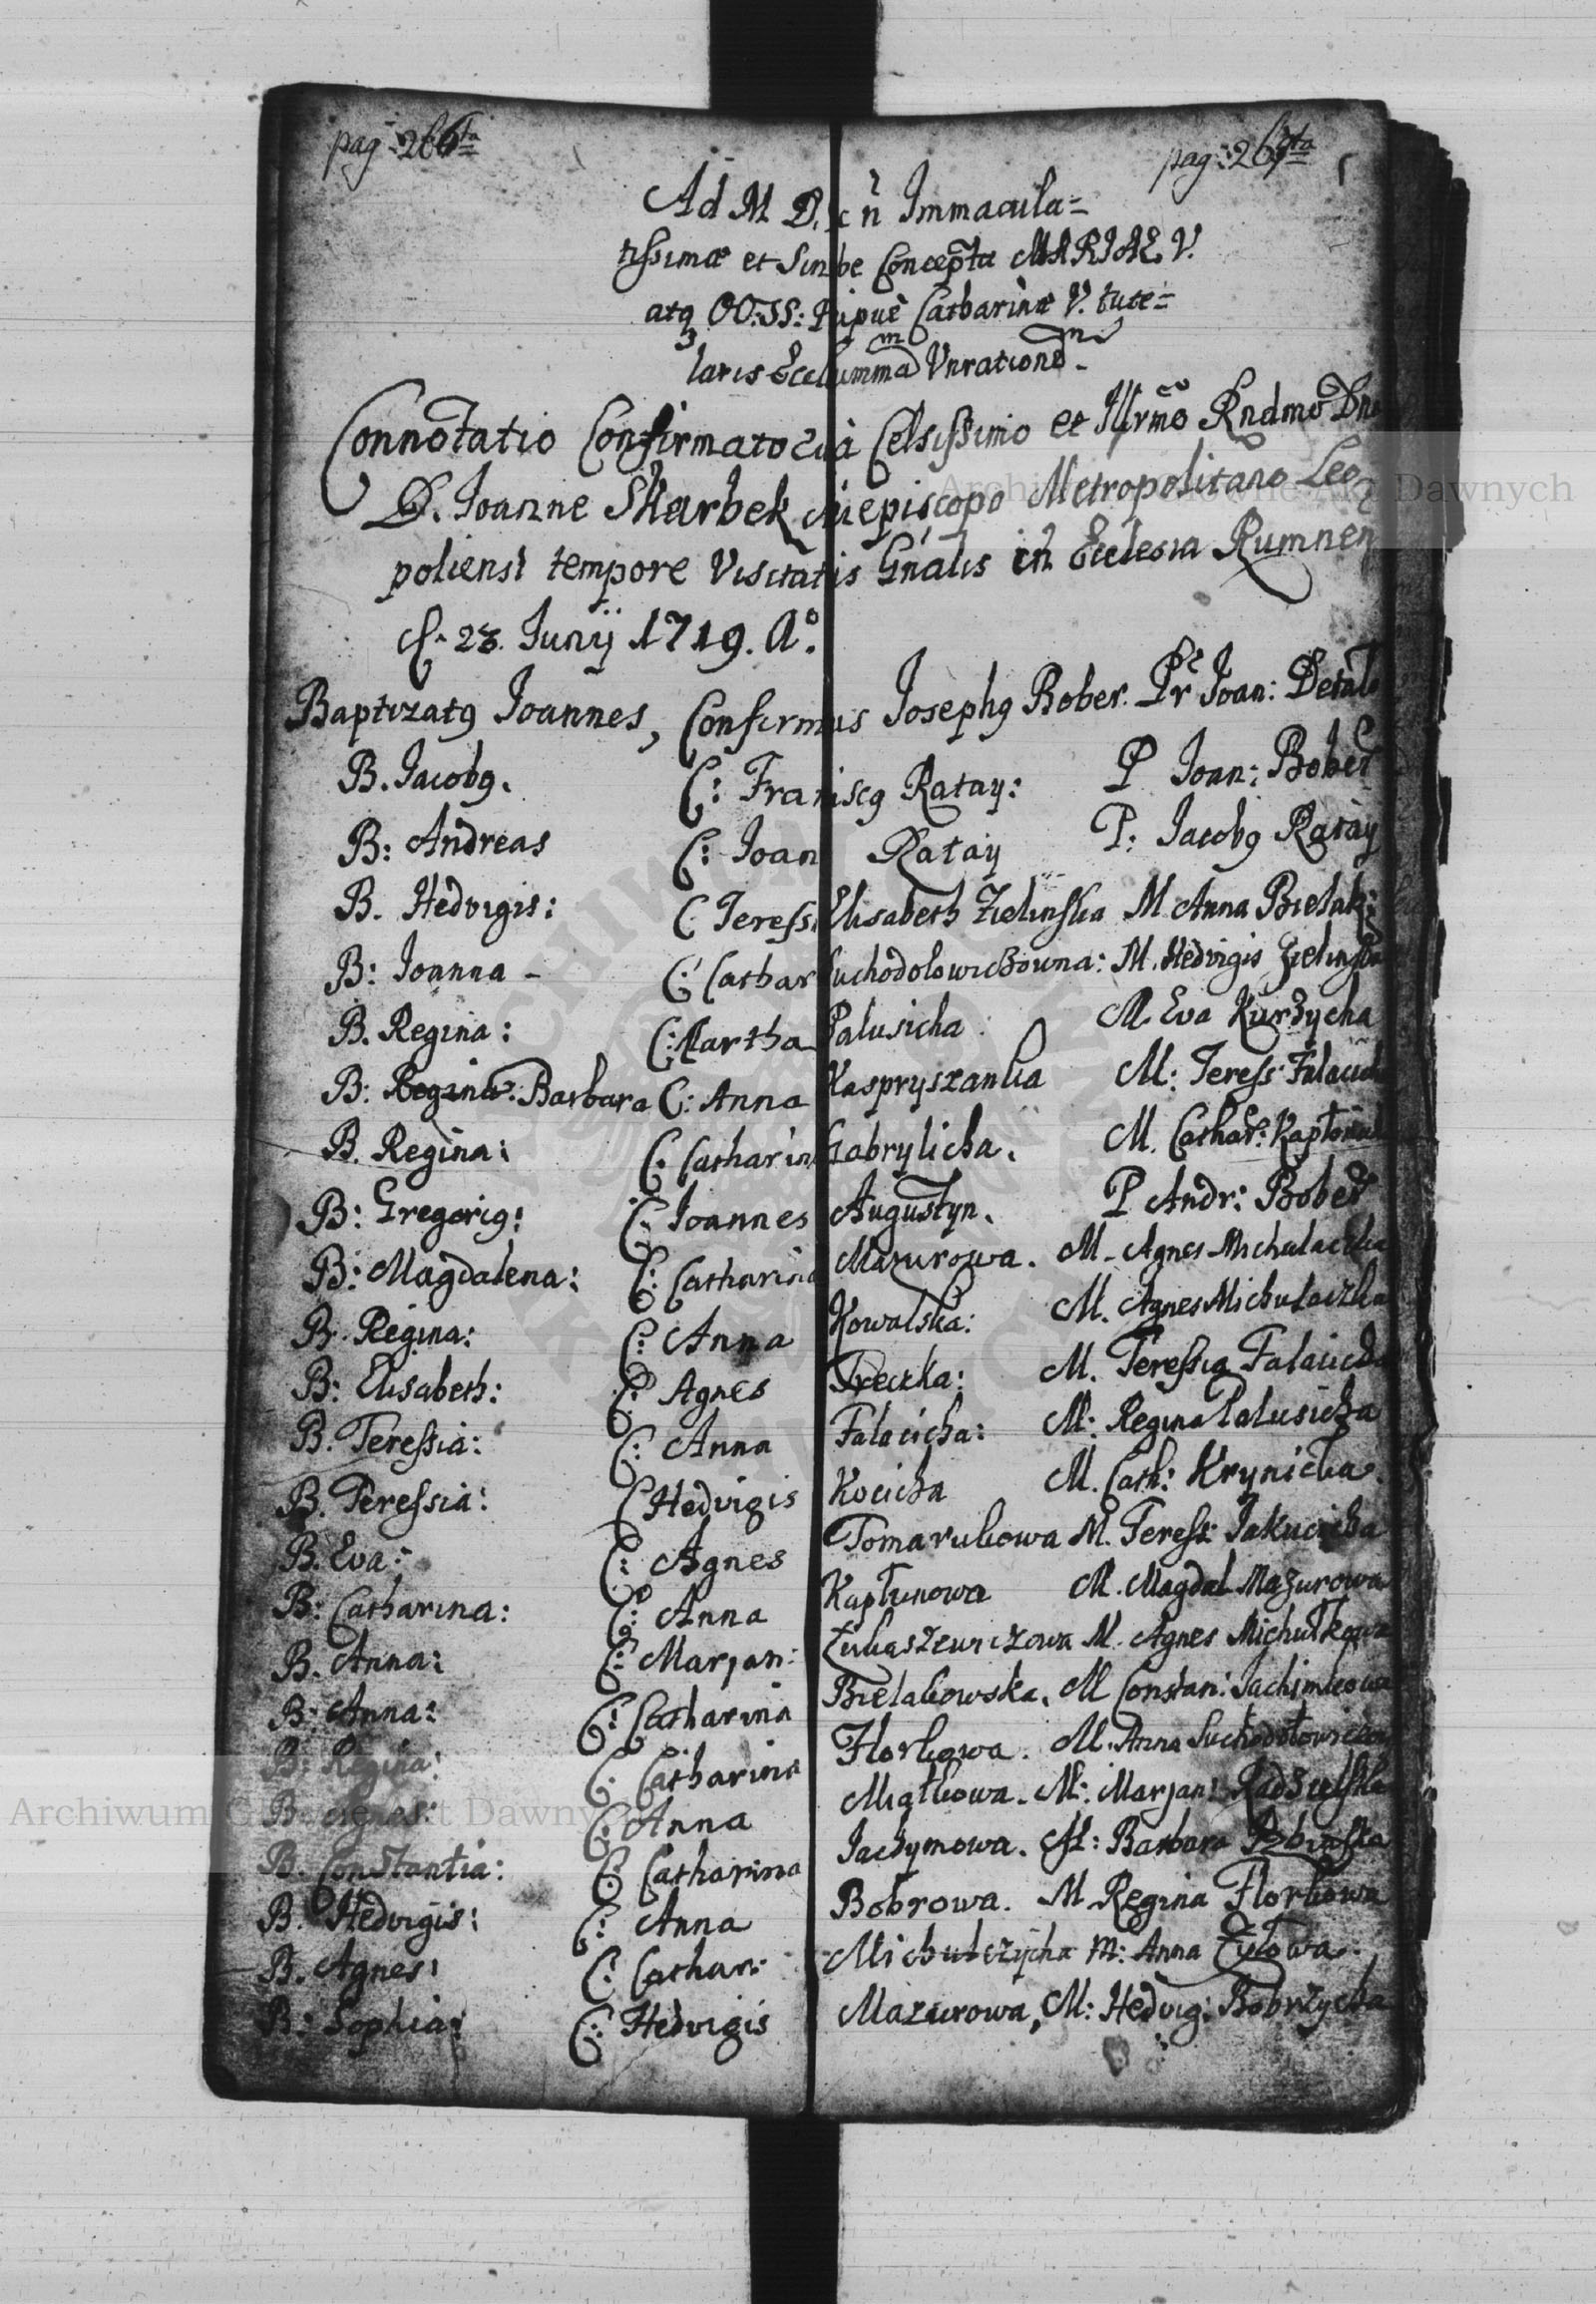 pag: 266ta
pag: 267ta
Ad M D. c n Immacula=
tissimæ et Sin be Conceptæ MARIAE V.
atq OO: SS: Pipuè Catharinæ V. tute=
laris Eccl summa Vnrationẽ
Connotatio Confirmato à Celsissimo et Illrmo Rndmo Dno
D. Joanne Skarbek Aiepiscopo Metropolitano Leo
poliensi tempore Visitatis Gnalis in Ecclesia Rumnen
d. 23. Junij 1719. Aº.
Baptizatq Joannes, Confirmus Josephq Bober. Pr Joan: Detal
B. Jacobq. C: Franiscq Ratay: P Joan: Bober
B: Andreas C: Joan Ratay P: Jacobq Ratay
B. Hedvigis: C Teress Elisabeth Zielinska M Anna Bielak:
B: Joanna - C: Cathar Suchodolowiczowna: M. Hedvigis Zielinska
B. Regina: C: Martha Palusicha M. Eva Kurzycha
B: Regina: Barbara C: Anna Kaspryszanka M: Teress: Falacicha
B. Regina: C: Catharin Gabrylicha. M. Cathar: Kaplonka
B: Gregoriq: C: Joannes Augustyn. P Andr: Bober
B: Magdalena: C: Catharina Mazurowa. M. Agnes Michulaczka
B. Regina: C: Anna Kowalska: M. Agnes Michulaczka
B: Elisabeth: C: Agnes Treczka: M. Teressia Falacicha
B. Teressia: C: Anna Falacicha: M: Regina Palusicha
B. Teressia: C Hedvigis Kocicha M. Cath: Krynicka.
B. Eva: C: Agnes Tomarukowa M. Teress: Jakucicha
B: Catharina: C: Anna Kaplunowa M. Magdal Mazurowa
B. Anna: C: Marjan: Łukaszewiczowa M. Agnes Michułkowa
B: Anna: C: Catharina Bielakowska. M Constan: Jachimkowa
B: Regina: C: Catharina Florkowa. M. Anna Suchodołowiczow
B: Agnes: C: Anna Miątkowa. M: Marjan: Radzielska
B. Constantia: C: Catharina Jachymowa. M: Barbara
B. Hedvigis: C: Anna Bobrowa. M Regina Florkowa
B. Agnes: C: Cathar: Michulczycha M: Anna Zyłowa.
B: Sophia: C: Hedvigis Mazurowa, M: Hedvig: Bobrzycha
Archiwum Główne Akt Dawnych
Archiwum Główne Akt Dawnych